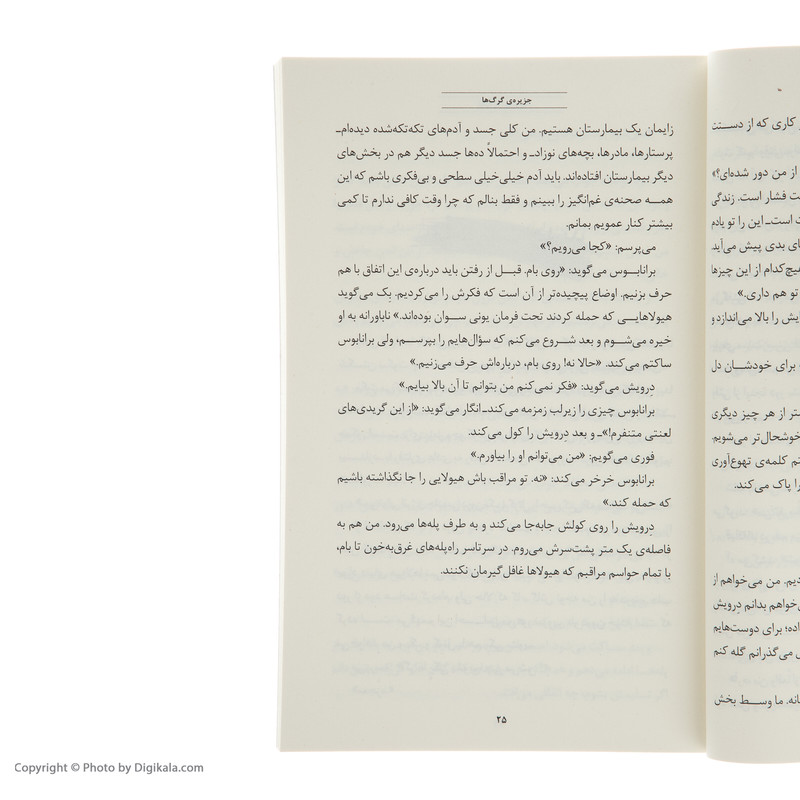 کاری که از دســنت
از من دور شده‌ای؟»
ت فشار است. زندگی
ت استـ این را تو یادم
ای بدی پیش می‌آید.
هیچ‌کدام از این چیزها
تو هم داری.»
یش را بالا می‌اندازد و
برای خودشــان دل
ستر از هر چیز دیگری
خوشحال‌تر می‌شویم
نم کلمه‌ی تهوع‌آوری
را پاک می‌کند.
دیم. من می‌خواهم از
خواهم بدانم دِرویش
اده؛ برای دوست‌هایم
ی می‌گذرانم گله کنم
انه. ما وســط بخش
جزیره‌ی گرگ‌ها
زایمان یک بیمارستان هستیم. من کلی جسد و آدم‌های تکه‌تکه‌شده دیده‌امـ
پرستارها، مادرها، بچه‌های نوزادـ و احتمالاً ده‌ها جسد دیگر هم در بخش‌های
دیگر بیمارستان افتاده‌اند. باید آدم خیلی‌خیلی سطحی و بی‌فکری باشم که این
همـــه صحنه‌ی غم‌انگیز را ببینم و فقط بنالم که چرا وقت کافی ندارم تا کمی
بیشتر کنار عمویم بمانم.
می‌پرسم: «کجا می‌رویم؟»
برانابــوس می‌گوید: «روی بام. قبــل از رفتن باید درباره‌ی این اتفاق با هم
حرف بزنیم. اوضاع پیچیده‌تر از آن است که فکرش را می‌کردیم. بِک می‌گوید
هیولاهایــی که حمله کردند تحت فرمان یونی ســوان بوده‌اند.» ناباورانه به او
خیره می‌شوم و بعد شــروع می‌کنم که سؤال‌هایم را بپرســم، ولی برانابوس
ساکتم می‌کند. «حالا نه! روی بام، درباره‌اش حرف می‌زنیم.»
دِرویش می‌گوید: «فکر نمی‌کنم من بتوانم تا آن بالا بیایم.»
برانابوس چیزی را زیرلب زمزمه می‌کندـ انگار می‌گوید: «از این گریدی‌های
لعنتی متنفرم!»ـ و بعد دِرویش را کول می‌کند.
فوری می‌گویم: «من می‌توانم او را بیاورم.»
برانابوس خرخر می‌کند: «نه. تو مراقب باش هیولایی را جا نگذاشته باشیم
که حمله کند.»
دِرویش را روی کولش جابه‌جا می‌کند و به طرف پله‌ها می‌رود. من هم به
فاصله‌ی یک متر پشت‌سرش می‌روم. در سرتاسر راه‌پله‌های غرق‌به‌خون تا بام،
با تمام حواسم مراقبم که هیولاها غافل‌گیرمان نکنند.
۲۵
Copyright © Photo by Digikala.com